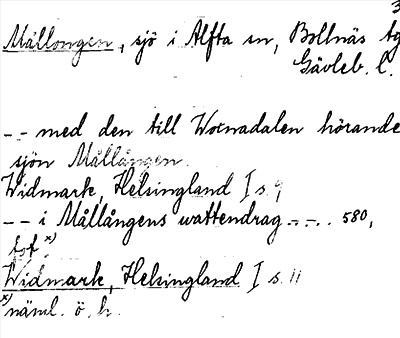 3
Mållongen, sjö i Alfta sn, Bollnäs tg
Gävleb. l.
-- med den till Woxnadalen hörande
sjön Mållången.
Widmark, Helsingland I s. 9
-- i Mållångens wattendrag --.. 580,
fot x)
Widmark, Helsingland I s. 11
x) näml. ö. h.